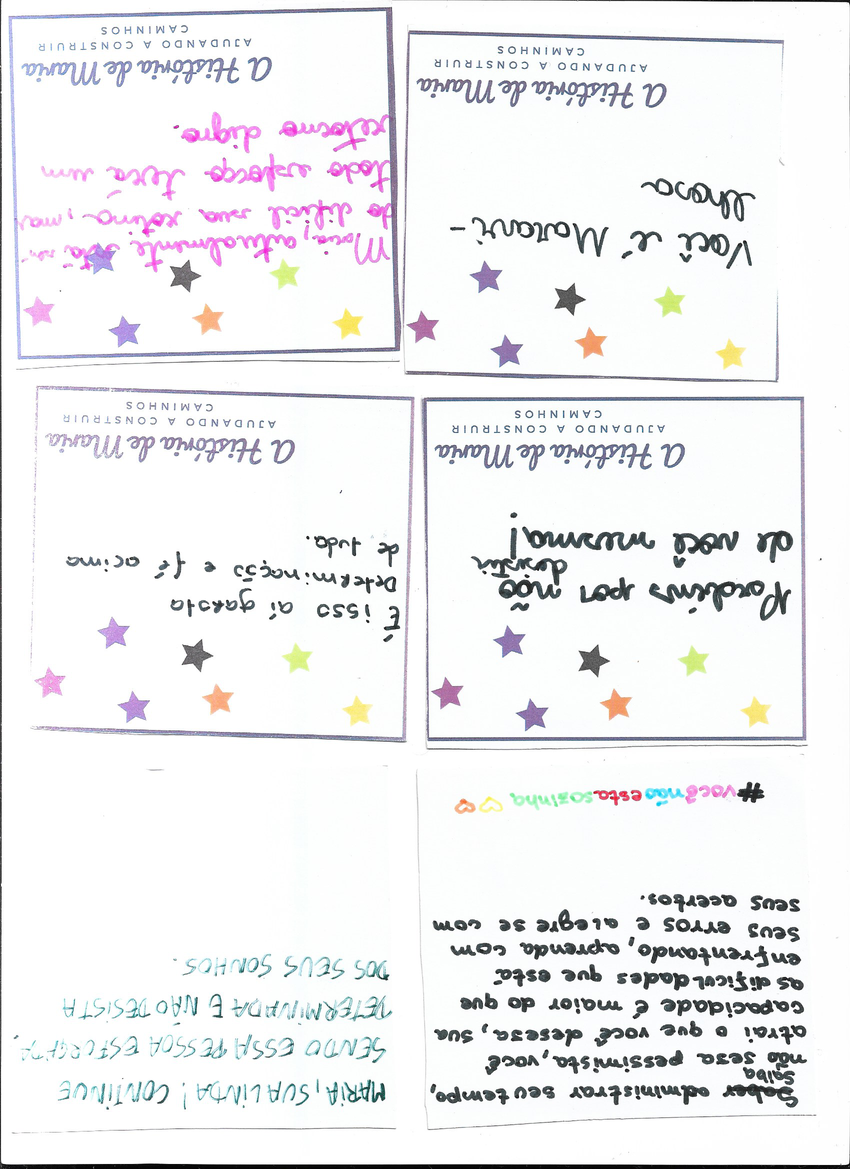 Saber administrar seu tempo,
Saiba
não seja pessimista, você
atrai o que você deseja, sua
capacidade é maior do que
as dificuldades que está
enfrentando, aprenda com
seus erros e alegre se com
seus acertos.
#vocênãoestasozinha
MARIA, SUA LINDA! CONTINUE
SENDO ESSA PESSOA ESFORÇADA,
DETERMINADA E NÃO DESISTA
DOS SEUS SONHOS.
Parabéns por não
desistir
de você mesma!
A História de Maria
AJUDANDO A CONSTRUIR
CAMINHOS
É isso aí garota
Determinação e fé acima
de tudo.
A História de Maria
AJUDANDO A CONSTRUIR
CAMINHOS
Você é Maravi-
lhosa
A História de Maria
AJUDANDO A CONSTRUIR
CAMINHOS
Maria, atualmente está sen-
do difícil sua rotina, mas
todo esforço terá um
retorno digno.
A História de Maria
AJUDANDO A CONSTRUIR
CAMINHOS